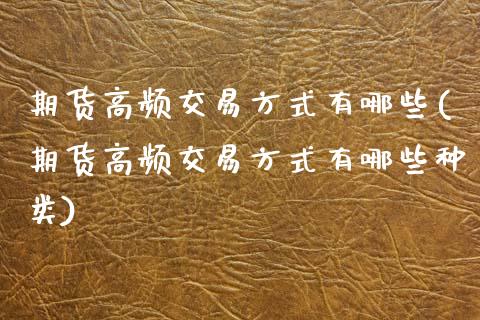 期货高频交易方式有哪些(
期货高频交易方式有哪些种
类)